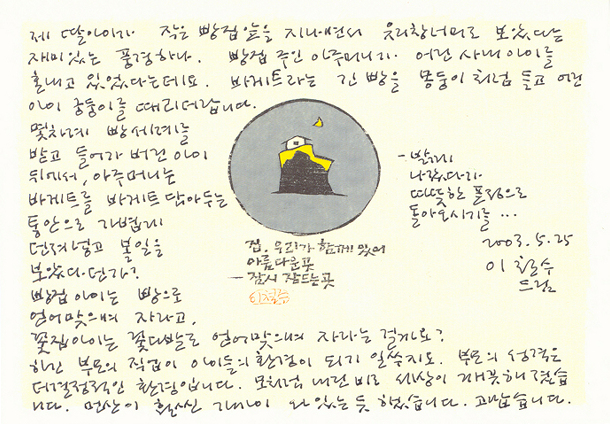 제 딸아이가 작은 빵집앞을 지나면서 유리창너머로 보았다는
재미있는 풍경하나. 빵집 주인 아주머니가 어린 사내아이를
혼내고 있었다는데요. 바게트라는 긴 빵을 몽둥이처럼 들고 어린
아이 궁둥이를 때리더랍니다.
몇차례 빵세례를
받고 들어가 버린 아이
뒤에서, 아주머니는
바게트를 바게트 담아두는
통안으로 가볍게
던져넣고 볼일을
보았다던가?
빵집아이는 빵으로
얻어맞으며 자라고,
꽃집아이는 꽃다발로 얻어맞으며 자라는 걸까요?
하긴 부모의 직업이 아이들의 환경이 되기 일쑤지요. 부모의 성격은
더결정적인 환경입니다. 모처럼 내린 비로 세상이 깨끗해졌습
니다. 먼산이 훨씬 가까이 와있는듯 했습니다. 고맙습니다.
집. 우리가 함께 있어
아름다운곳
- 잠시 잠드는곳
이철수
- 밝게
나갔다가
따뜻한 표정으로
돌아오시기를...
2003. 5. 25
이철수
드림